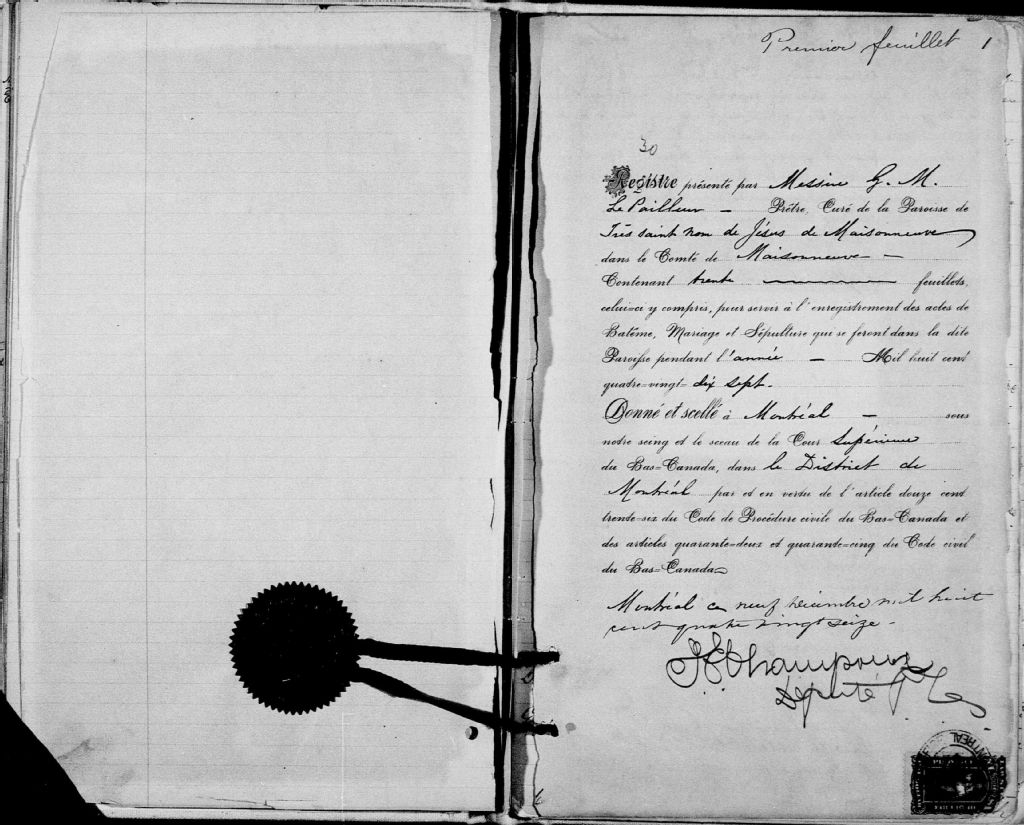 Premier feuillet 1
30
Registre présenté par Messire G. M.
Le Pailleur — Prêtre, Curé de la Paroisse de
Très saint nom de Jésus de Maisonneuve
dans le Comté de Maisonneuve —
Contenant trente feuillets,
celui=ci y compris, pour servir à l'enregistrement des actes de
Batême, Mariage et Sépulture qui se feront dans la dite
Paroisse pendant l'année — Mil huit cent
quatre=vingt= dix sept.
Donné et scellé à Montréal — sous
notre seing et le sceau de la Cour Supérieure
du Bas=Canada, dans le District de
Montréal par et en vertu de l'article douze cent
trente=six du Code de Procédure civile du Bas=Canada et
des articles quarante=deux et quarante=cinq du Code civil
du Bas=Canada
Montréal ce neuf décembre mil huit
cent quatre vingt seize.
Champoux
Député